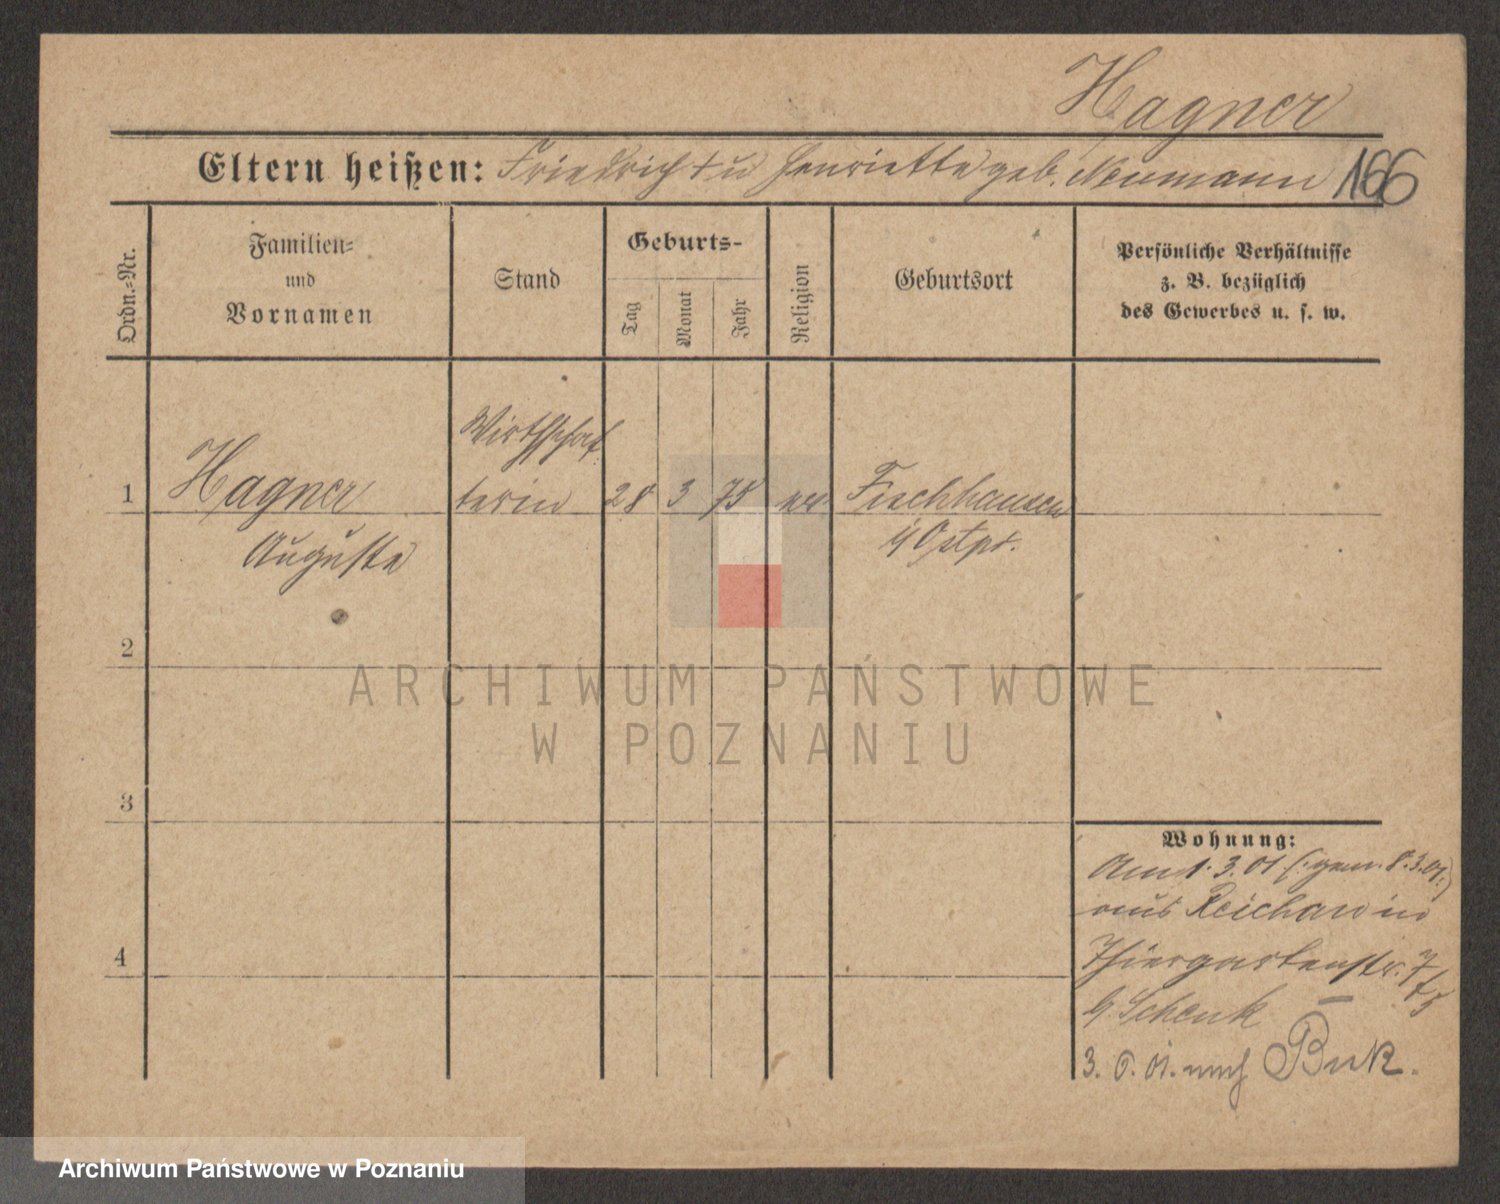 Hagner
Eltern heißen: Friedrich † u Henriette geb. Neumann 166
Ordn.=Nr.
Familien=
und
Vornamen
Stand
Geburts-
Tag
Monat
Jahr
Religion
Geburtsort
Persönliche Verhältnisse
z. B. bezüglich
des Gewerbes u. s. w.
1
Hagner
Auguste
Wirthschaf
terin
28
3
75
ev.
Fischhausen
i/ Ostpr.
2
3
4
Wohnung:
Am 1. 3. 01 (: gem. 8. 3. 01:)
aus Reichau in
Thiergartenstr. 7/5
b/ Schenk
3. 6. 01. nach Buk.
ARCHIWUM PAŃSTWOWE
W POZNANIU
Archiwum Państwowe w Poznaniu